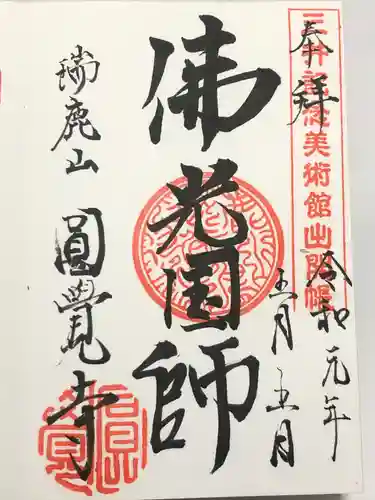 三井記念美術館出開帳
奉拝
令和元年
五月五日
佛光国師
瑞鹿山
圓覺寺